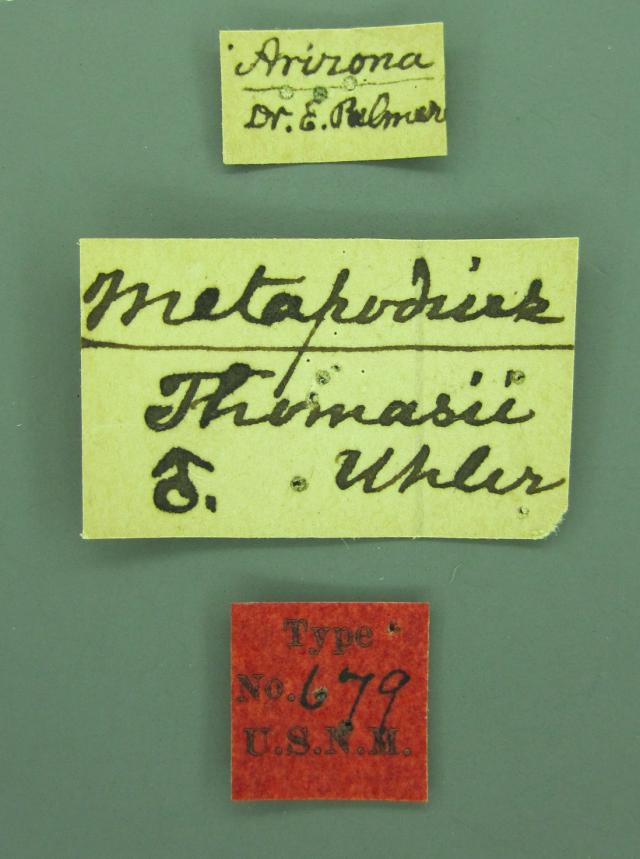 Arizona
Dr. E. Palmer
Metapodius
Thomasii
♂. Uhler
Type
No. 679
U.S.N.M.